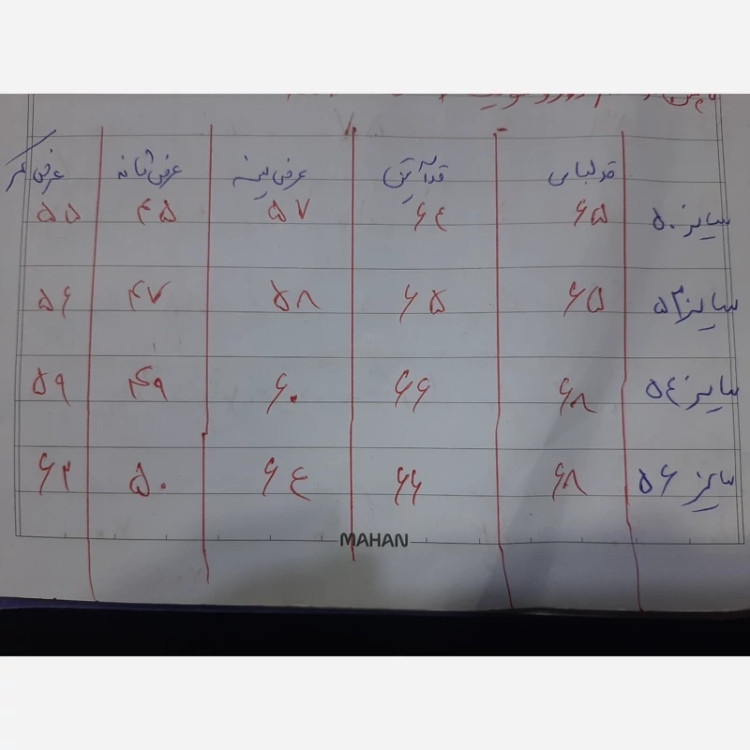 قد لباس قد آستین عرض سینه عرض شانه عرض کمر
سایز ۵۰ ۶۵ ۶۴ ۵۷ ۴۵ ۵۵
سایز ۵۲ ۶۵ ۶۵ ۵۸ ۴۷ ۵۶
سایز ۵۴ ۶۸ ۶۶ ۶۰ ۴۹ ۵۹
سایز ۵۶ ۶۸ ۶۶ ۶۴ ۵۰ ۶۲
MAHAN